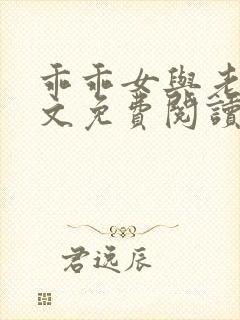 乖乖女與老
文免費閱讀
君远辰